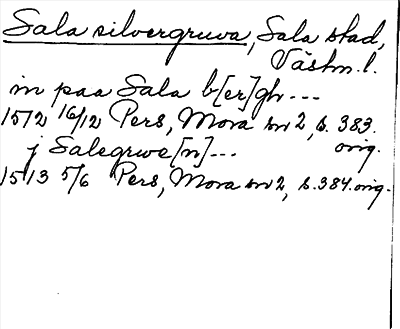 Sala silvergruva, Sala stad,
Västm.l.
in paa Sala b[er]gh...
1512 16/12 Pers, Mora nr 2, s. 383.
orig.
j Salegrwe[n]...
1513 5/6 Pers, Mora nr 2, s. 384. orig.